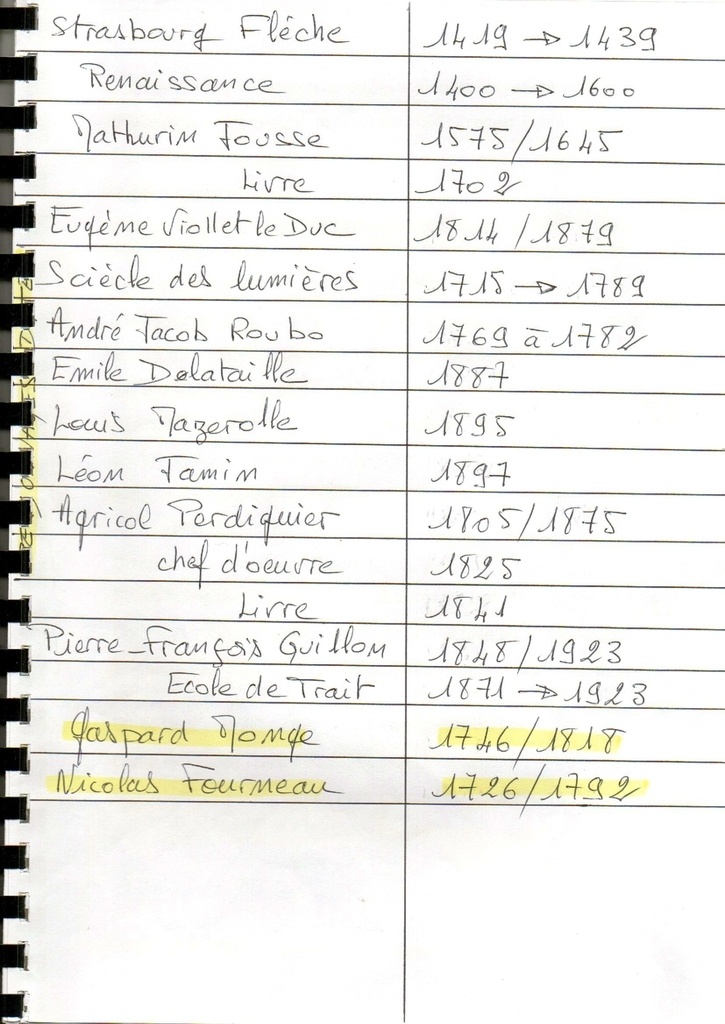 Strasbourg Flèche 1419 → 1439
Renaissance 1400 → 1600
Mathurin Jousse 1575/1645
Livre 1702
Eugème Viollet le Duc 1814 /1879
Sciècle des lumières 1715 → 1789
André Jacob Roubo 1769 à 1782
Emile Delataille 1887
Louis Mazerolle 1895
Léon Jamin 1897
Agricol Perdiguier 1805/1875
chef d'oeuvre 1825
Livre 1841
Pierre-François Guillon 1848/1923
Ecole de Trait 1871 → 1923
Gaspard Monge 1746/1818
Nicolas Fourneau 1726/1792